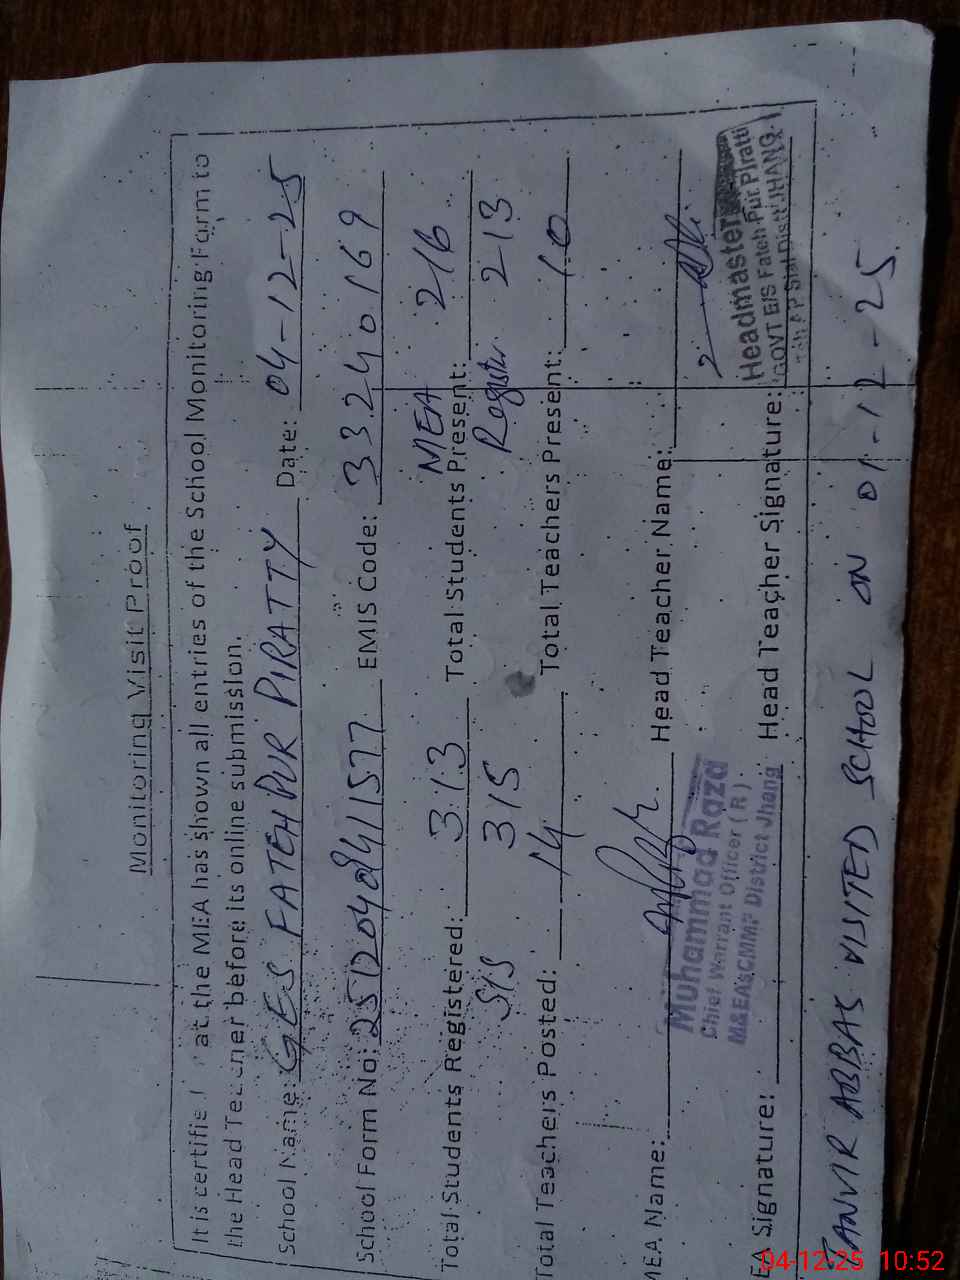 Monitoring Visit Proof
It is certified at the MEA has shown all entries of the School Monitoring Form to
the Head Teacher before its online submission.
School Name: GES FATEH PUR PIRATTY Date: 04-12-25
School Form No: EMIS Code: 33240169
MEA 216
Total Students Registered: 313 Total Students Present:
SIS 315 Register 213
Total Teachers Posted: 14 Total Teachers Present: 10
MEA Name: Head Teacher Name:
Muhammad Raza
Chief Warrant Officer (R)
M&EAsCMMF District Jhang
EA Signature: Head Teacher Signature:
Headmaster
GOVT E/S Fateh Pur Piratti
Distt JHANG
TANVIR ABBAS VISITED SCHOOL ON 01-12-25
04-12-25 10:52